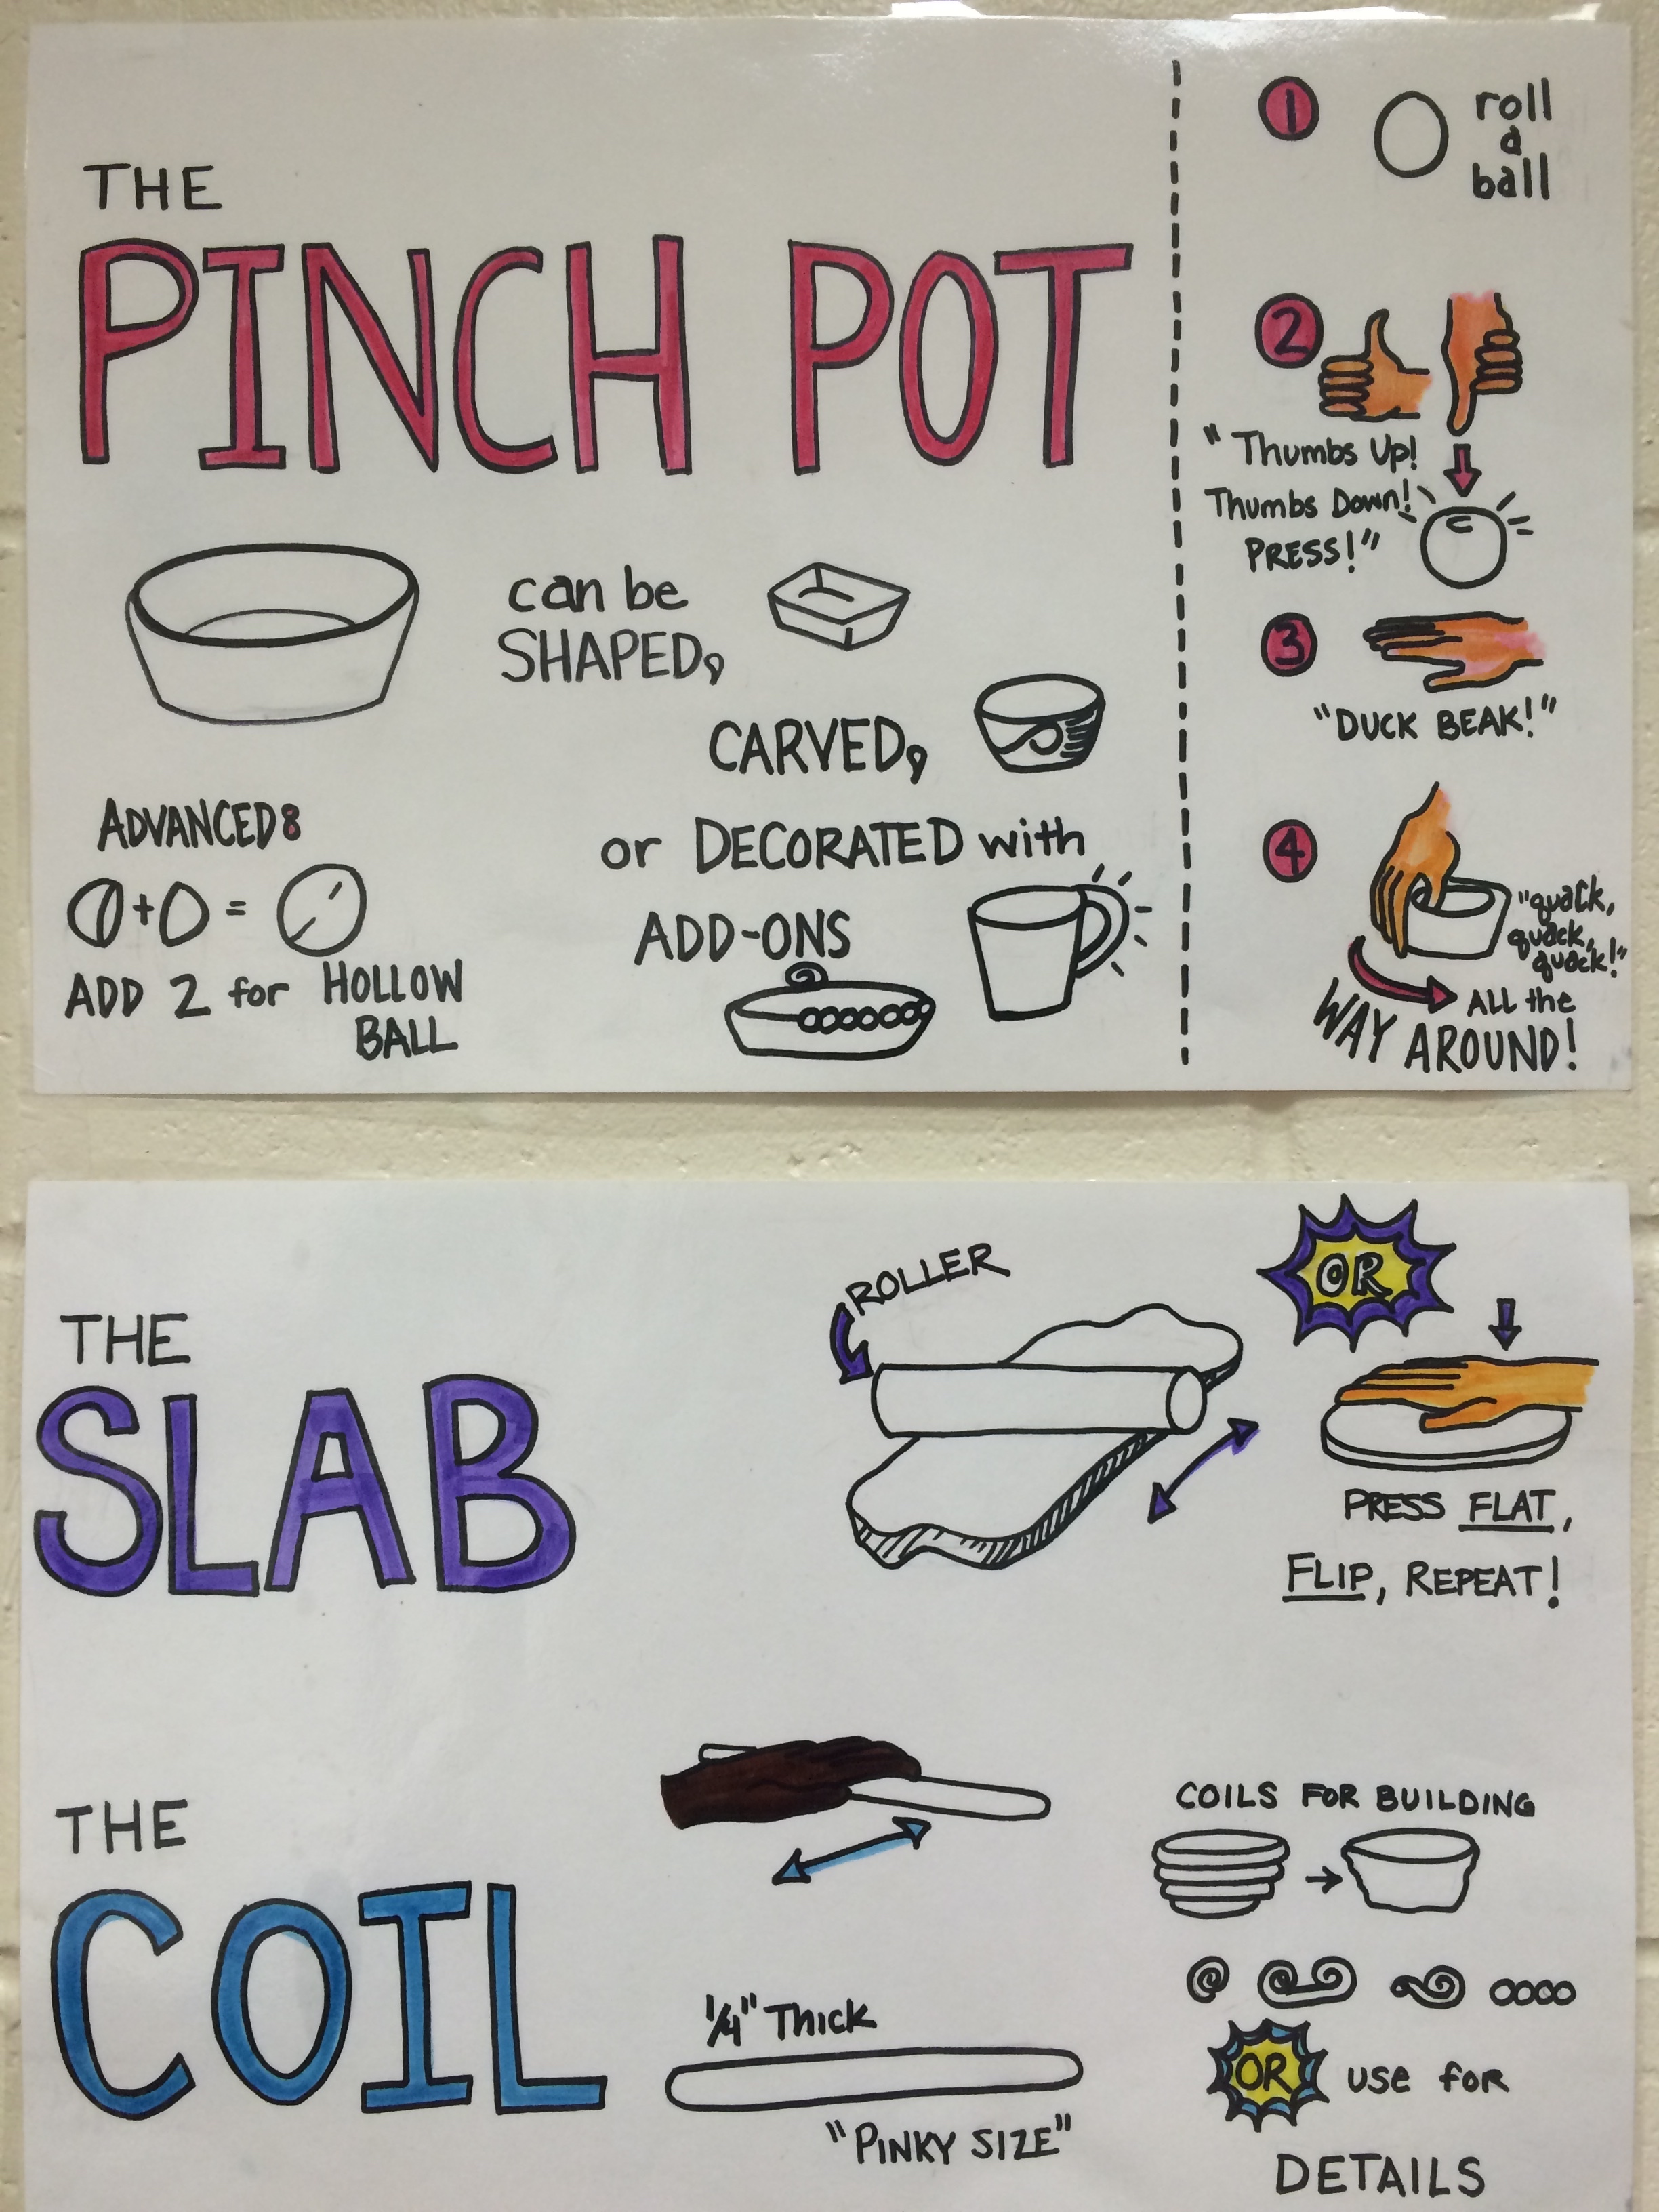 THE
PINCH POT
can be
SHAPED,
CARVED,
or DECORATED with
ADD-ONS
ADVANCED:
+ =
ADD 2 for HOLLOW
BALL
1 roll
a
ball
2
"Thumbs Up!
Thumbs Down!
PRESS!"
3
"DUCK BEAK!"
4
"quack,
quack,
quack!"
ALL the
WAY AROUND!
THE
SLAB
ROLLER
OR
PRESS FLAT,
FLIP, REPEAT!
THE
COIL
1/4" Thick
"PINKY SIZE"
COILS FOR BUILDING
OR use for
DETAILS